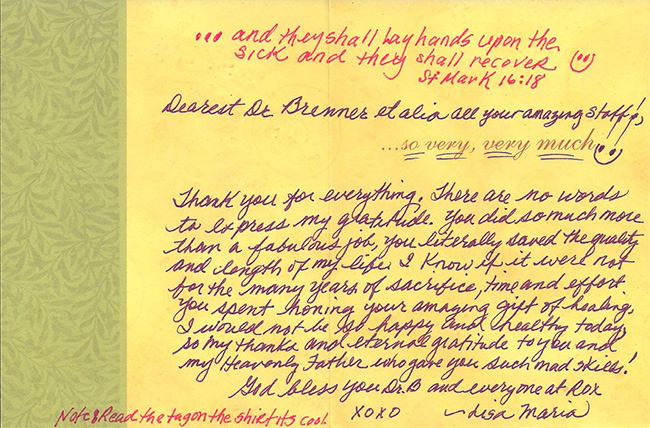 ... and they shall lay hands upon the
sick and they shall recover
St Mark 16:18
Dearest Dr. Brenner et alia all your amazing staff!,
...so very, very much!
Thank you for everything. There are no words
to express my gratitude. You did so much more
than a fabulous job, you literally saved the quality
and length of my life. I know if it were not
for the many years of sacrifice, time and effort
you spent honing your amazing gift of healing,
I would not be so happy and healthy today,
so my thanks and eternal gratitude to you and
my Heavenly Father who gave you such mad skills!
God bless you Dr. B and everyone at Rox
XOXO ~Lisa Maria
Note: Read the tag on the shirt its cool.